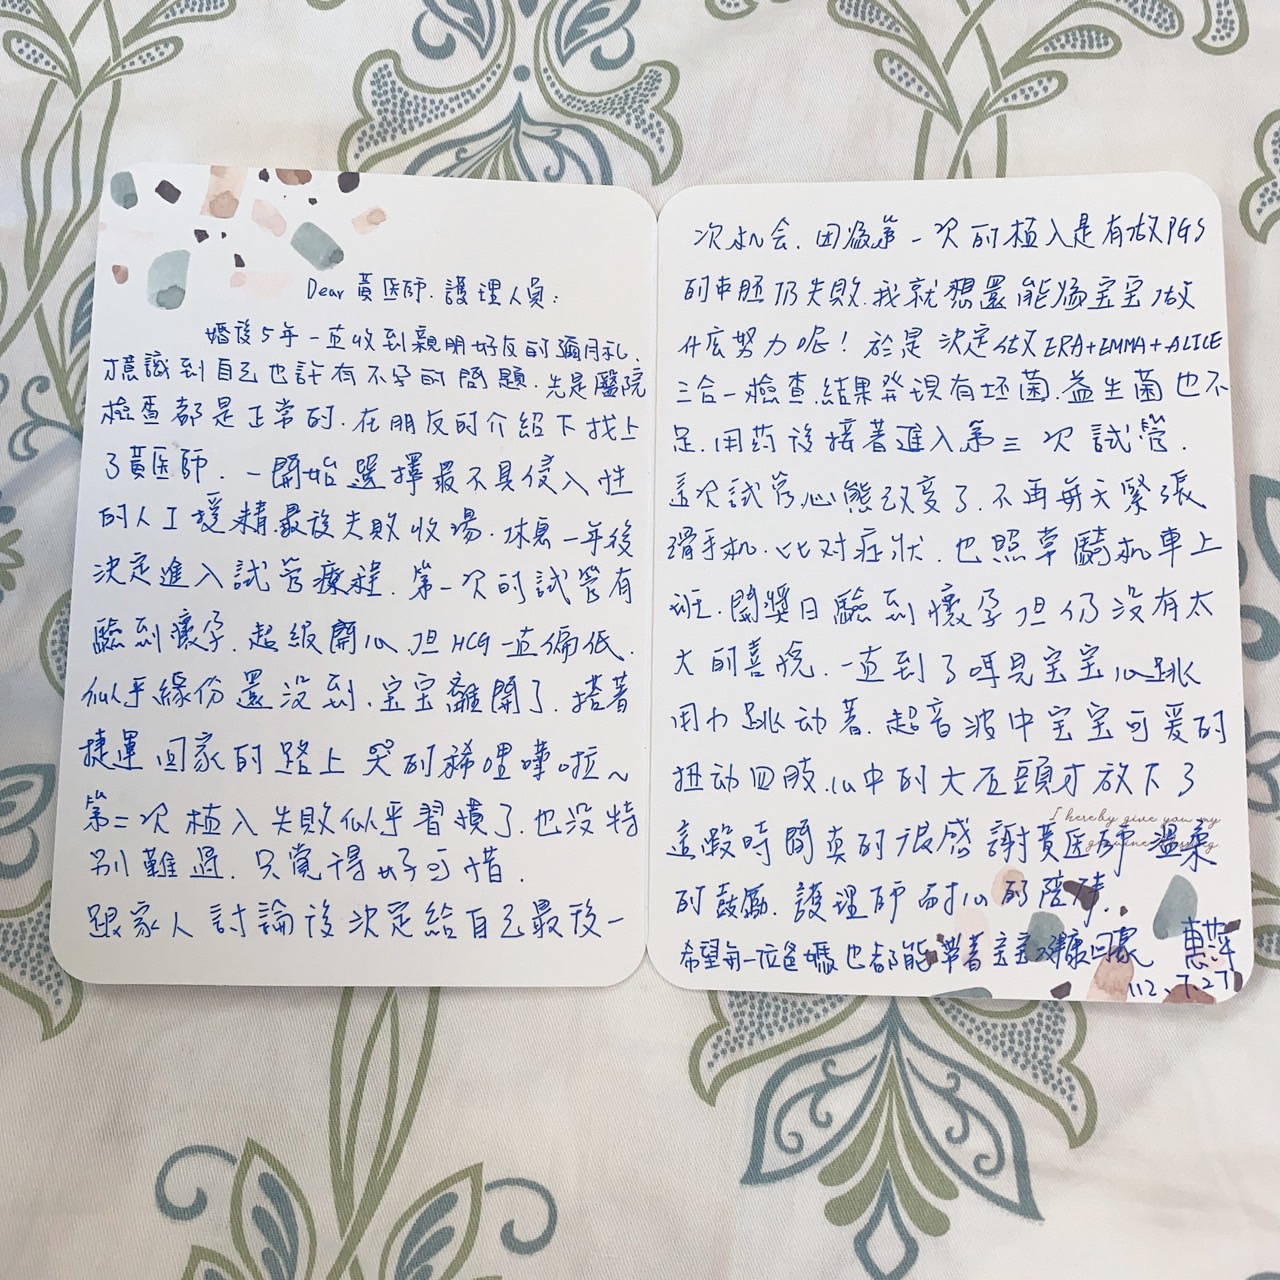 Dear 黃医師.護理人員:
婚後5年一直收到親朋好友的彌月礼,
才意識到自己也許有不孕的問題.先是醫院
檢查都是正常的.在朋友的介紹下找上
了黃医師.一開始選擇最不具侵入性
的人工受精.最後失敗收場.休息一年後
決定進入試管療程.第一次的試管有
驗到懷孕.超級開心但HCG一直偏低.
似乎緣份還没到.宝宝離開了.搭著
捷運回家的路上哭的稀哩嘩啦~
第二次植入失敗似乎習慣了.也没特
別難過.只覺得好可惜.
跟家人討論後決定給自己最後一
次机会.因為第一次的植入是有做PGS
的車胚仍失敗.我就想還能為宝宝做
什広努力呢!於是決定做ERA+EMMA+ALICE
三合一檢查.結果発現有坏菌.益生菌也不
足.用药後接著進入第三次試管.
這次試管心態改変了.不再每天緊張
滑手机.比对症狀.也照草騎机車上
班.開獎日驗到懷孕但仍没有太
大的喜悅.一直到了听見宝宝心跳
用力跳动著.超音波中宝宝可爱的
扭动四肢.心中的大石頭才放下了
I hereby give you my
這段時間真的很感謝黃医師溫柔
genuine blessing
的鼓励.護理師耐心的陪伴.
希望每一位爸媽也都能帶著宝宝健康回家
112.7.27